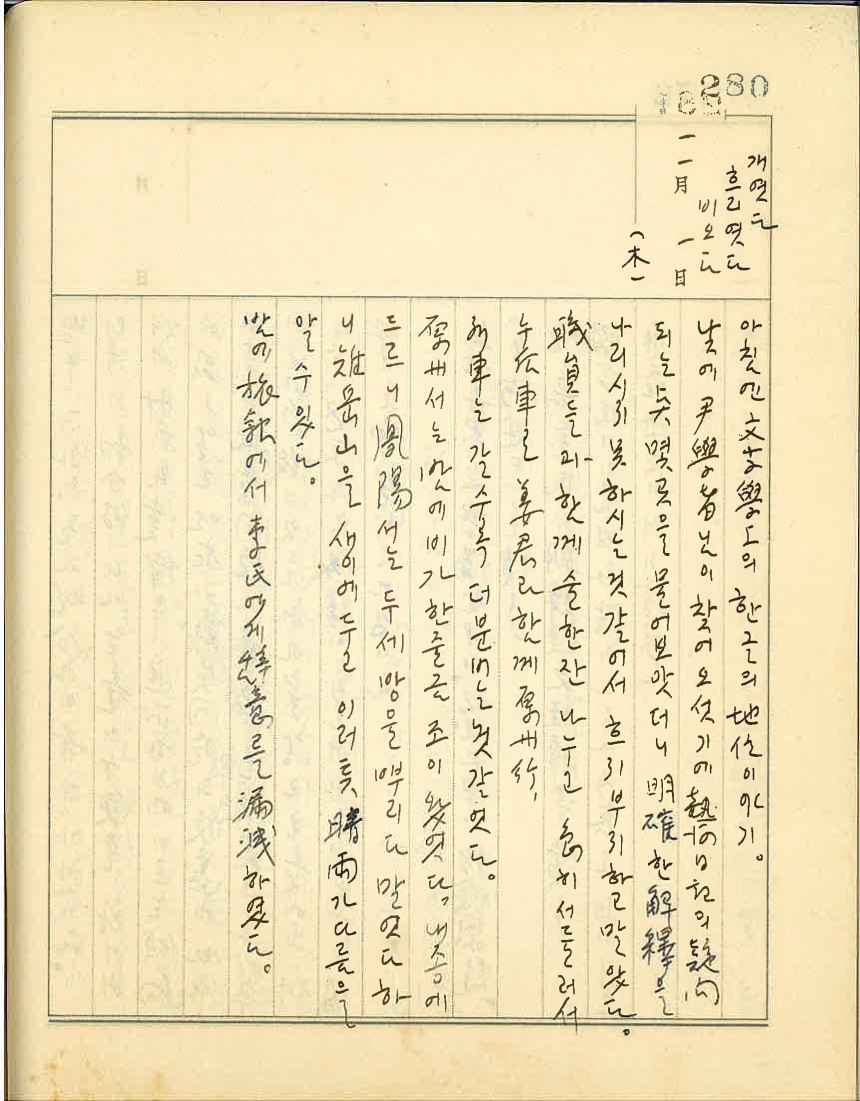 280
개엿다
흐리엿다
비오다
一一月 一日
(木)
아침엔 文字學上의 한글의 地位 이야기。
낮에 尹學者님이 찾어오섯기에 熱河日記의 疑問
되는 곳 몇곳을 물어보앗더니 明確한 解釋을
나리시지 못하시는것 갈어서 흐리부리하고 말앗다。
職員들과 함게 술한잔 나누고 急히 서들러서
午后車로 姜君과 함게 原州行,
列車는 갈수록 더 분비는것 갈엇다。
原州서는 밤에 비가 한줄금 조이 왓엇다, 내종에
드르니 鳳陽서는 두세 방울 뿌리다 말엇다 하
니 雉岳山을 새이에 두고 이러틋 晴雨가 다름을
알 수 잇다。
밤에 旅館에서 李氏에게 辭意를 漏洩하엿다。